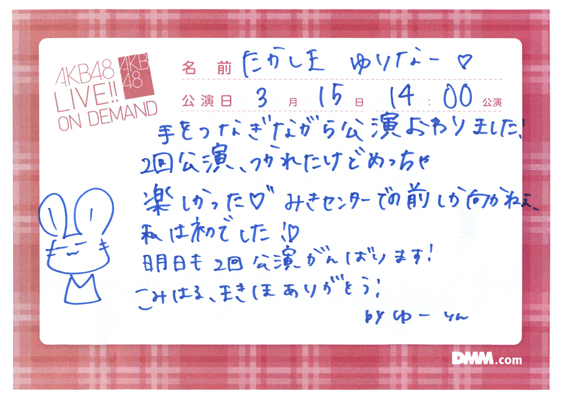 AKB48
LIVE!!
ON DEMAND
AKB48
名前 たかし王 ゆりなー♡
公演日 3月 15日 14:00公演
手をつなぎながら公演おわりました!
2回公演、つかれたけどめっちゃ
楽しかった♡ みきセンターでの前しか向かねぇ、
私は初でした!♡
明日も2回公演がんばります!
こみはる、まきほありがとう!
by ゆーりん
DMM.com